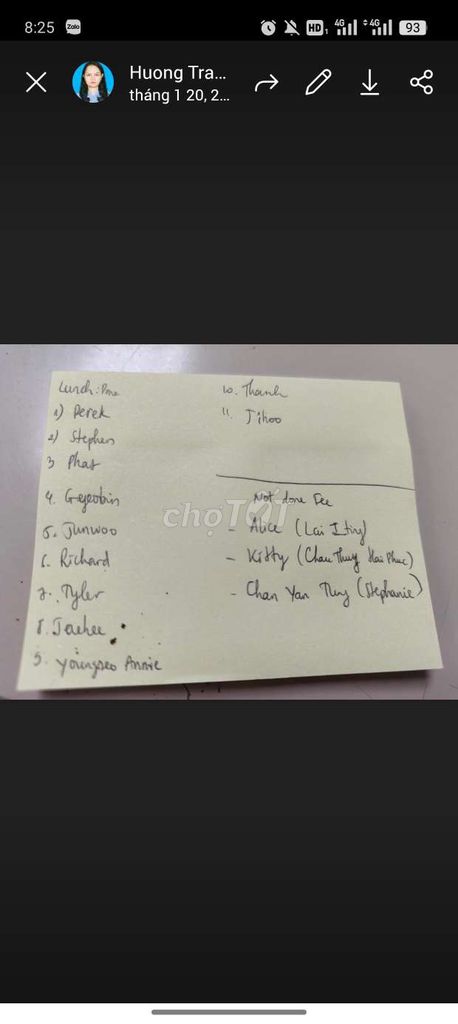 8:25
Zalo
HD 1
4G
4G
93
Huong Tra...
tháng 1 20, 2...
Lunch:
1) Derek
2) Stephen
3 Phat
4.
5. Junwoo
6. Richard
7. Tyler
8. Jaehee
9. Youngseo Annie
10. Thanh
11. Jihoo
Not done
- Alice (Lai I ting)
- Kitty (Chau Thuy Hai Phuc)
- Chan Yan Tung (Stephanie)
chợTỐT